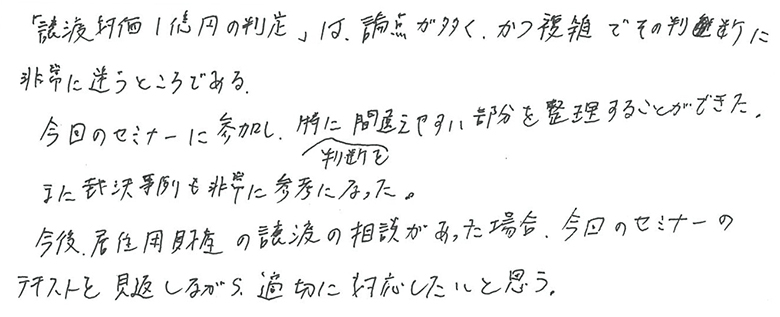 「譲渡対価1億円の判定」は、論点が多く、かつ複雑でその判断に
非常に迷うところである。
今回のセミナーに参加し、特に間違えやすい部分を整理することができた。
判断を
また裁決事例も非常に参考になった。
今後、居住用財産の譲渡の相談があった場合、今回のセミナーの
テキストを見返しながら、適切に対応したいと思う。